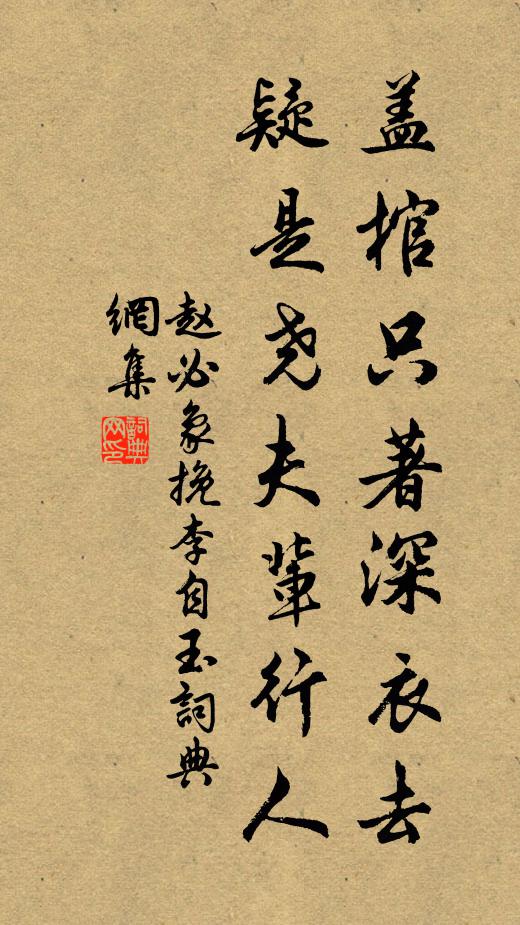 盖棺只著深衣去
疑是尧夫辈行人
赵必象挽李自玉詞典
網集
詞典
网印